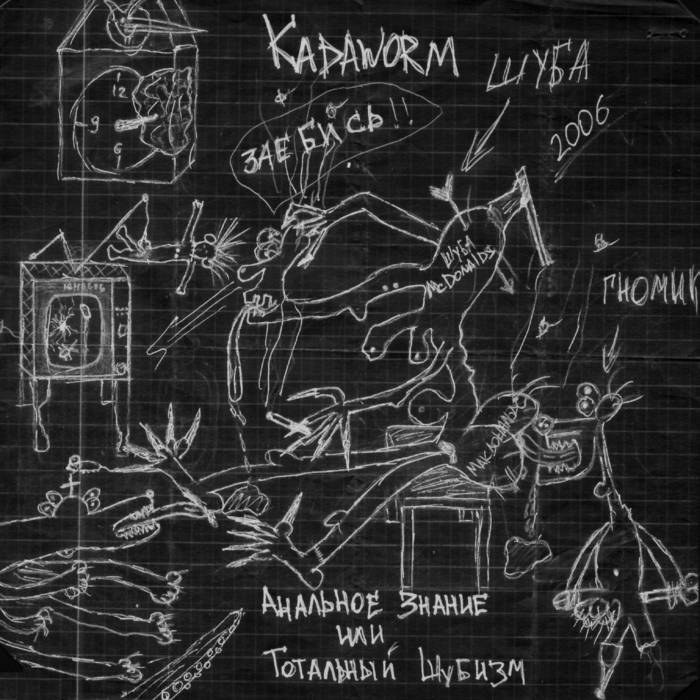 KADAWORM
ШУБА
2006
ЗАЕБИСЬ!!
12
9
6
ШУБА
McDONALDS
ЮНОСТЬ
ГНОМИК
МАКДОНАЛДС
АНАЛЬНОЕ ЗНАНИЕ
ИЛИ
ТОТАЛЬНЫЙ ШУБИЗМ